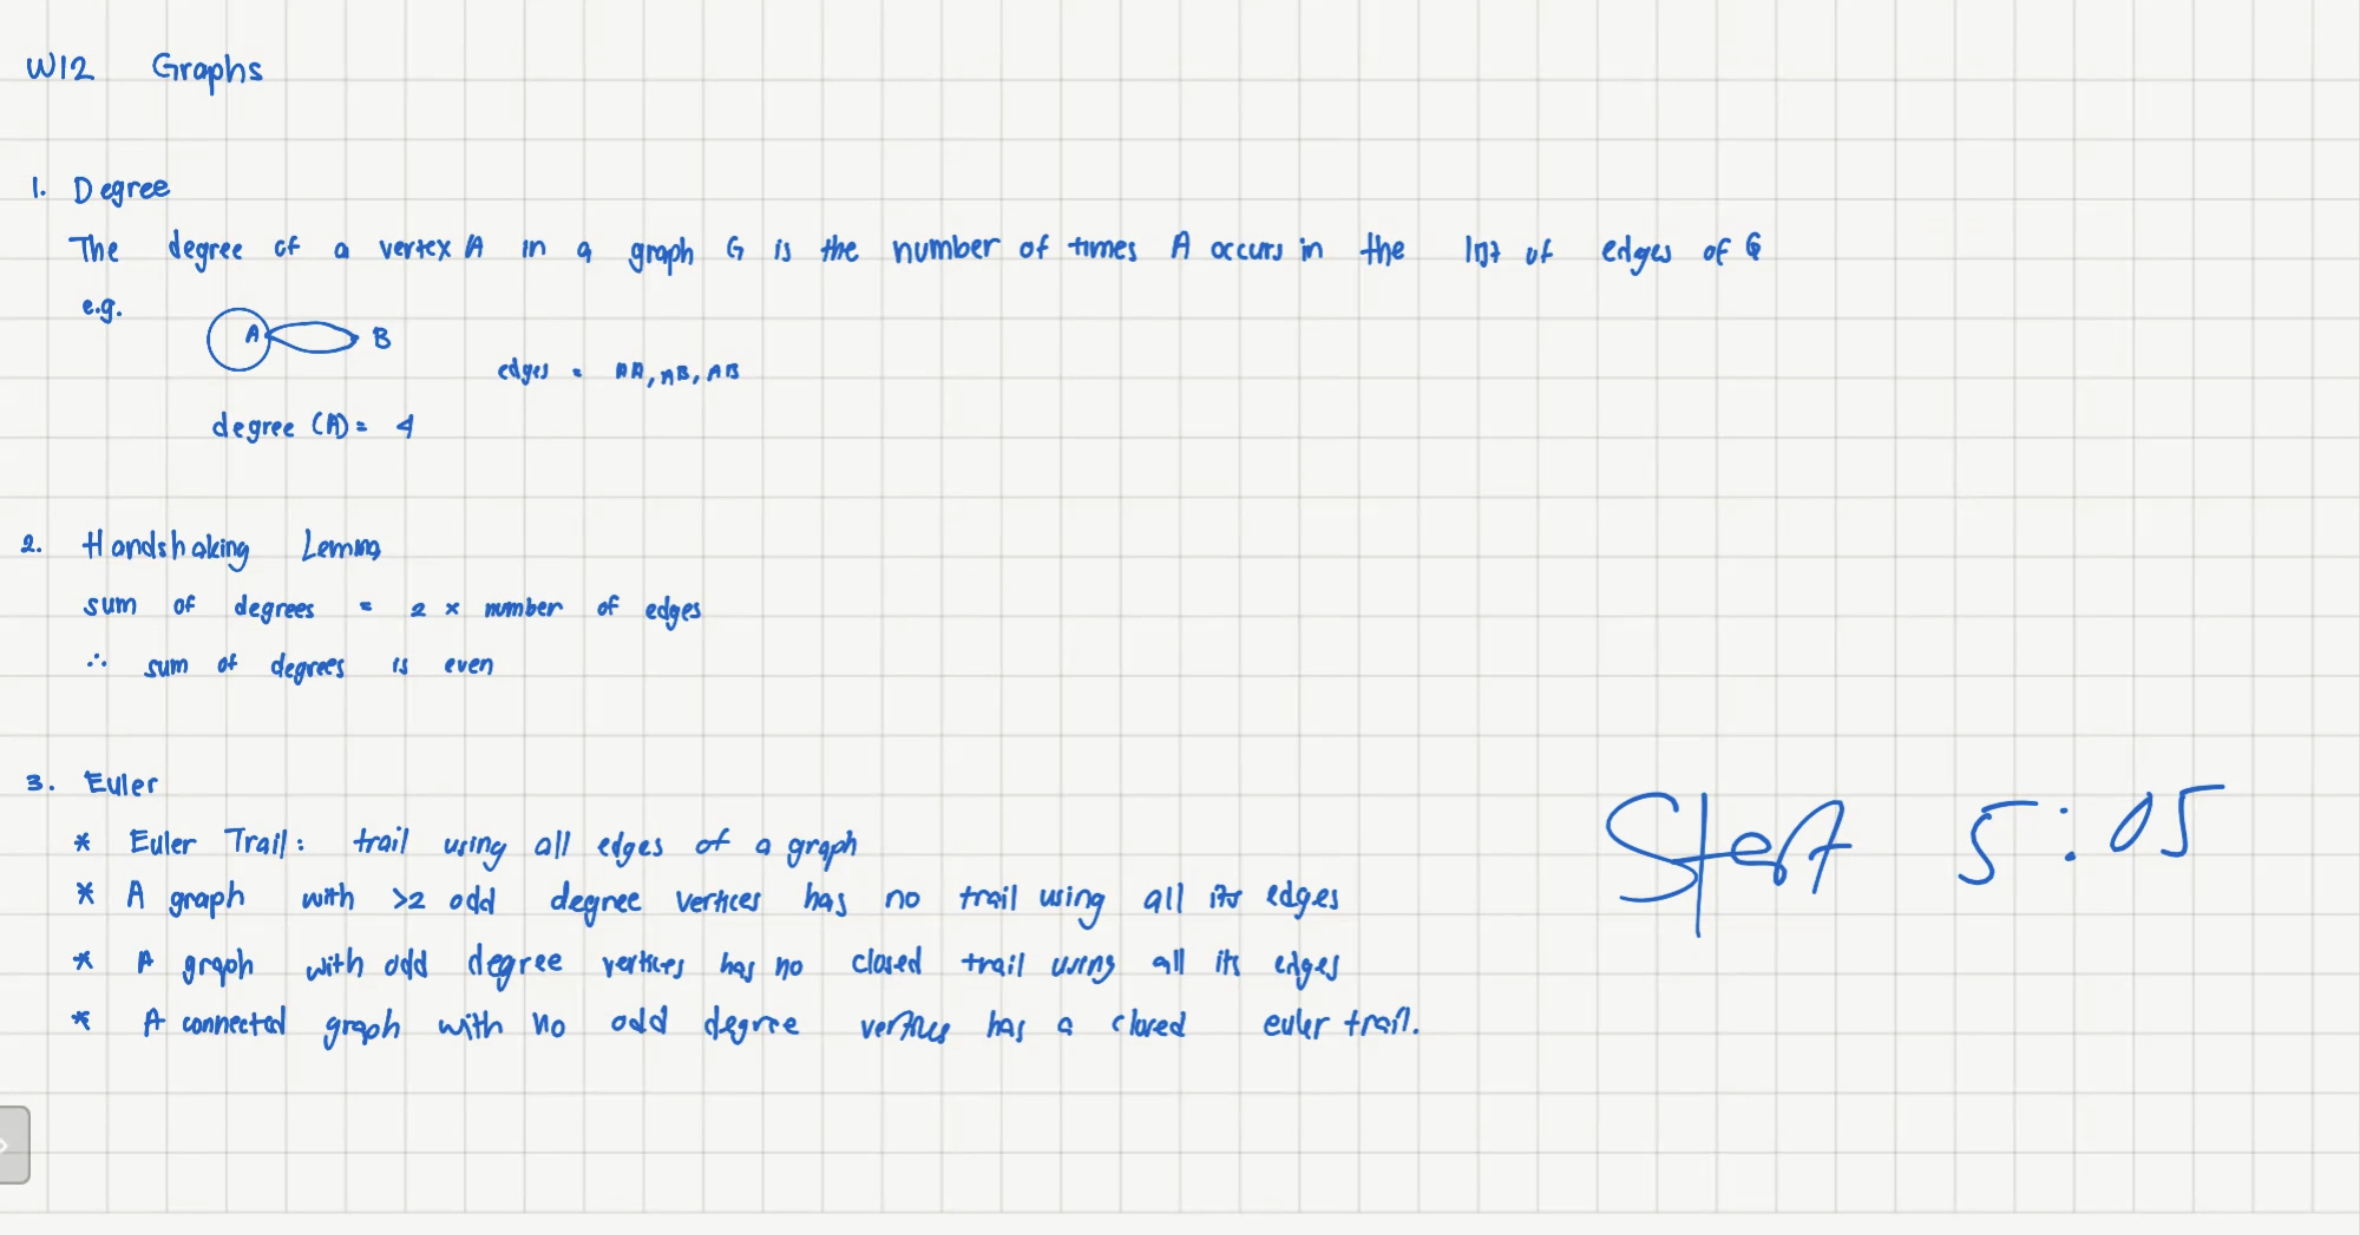 W12 Graphs
1. Degree
The degree of a vertex A in a graph G is the number of times A occurs in the list of edges of G
e.g.
A B
edges = AA, AB, AB
degree (A) = 4
2. Handshaking Lemma
sum of degrees = 2 × number of edges
∴ sum of degrees is even
3. Euler
* Euler Trail: trail using all edges of a graph
* A graph with >2 odd degree vertices has no trail using all its edges
* A graph with odd degree vertices has no closed trail using all its edges
* A connected graph with no odd degree vertices has a closed euler trail.
Start 5:05